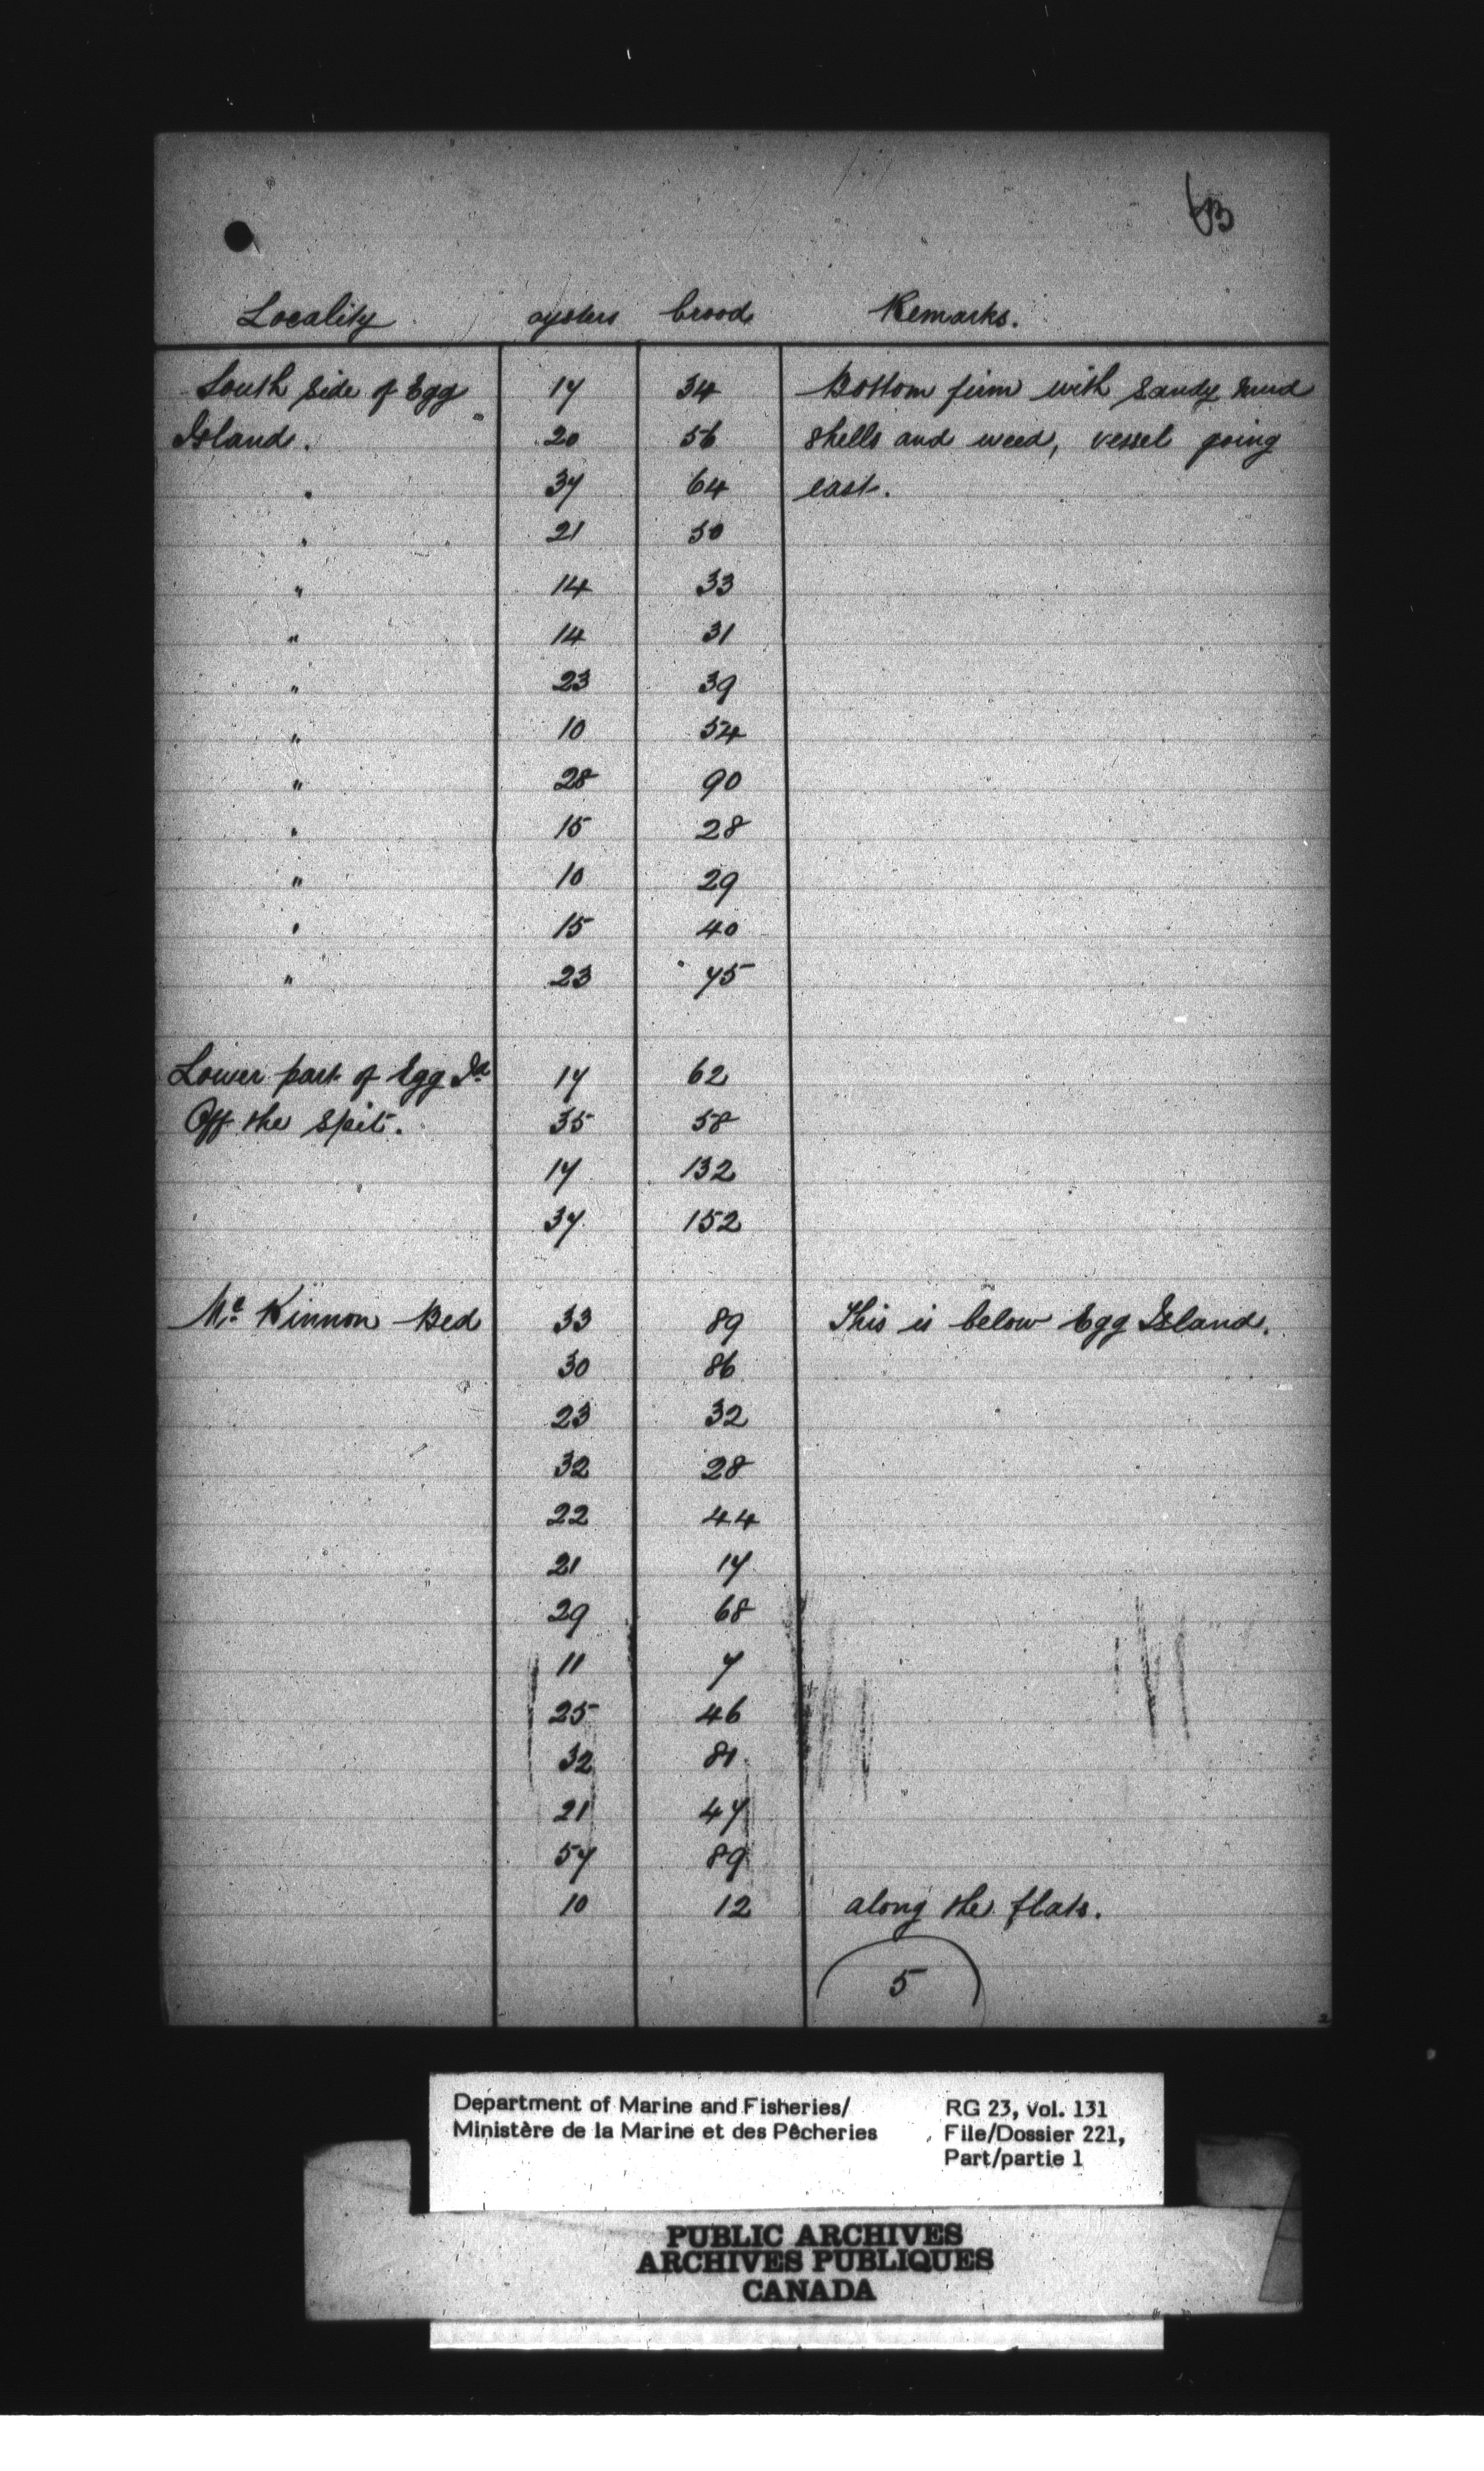 Locality oysters brood Remarks.
South side of Egg 17 34 Bottom firm with sandy mud
Island. " 20 56 shells and weed, vessel going
" 37 64 east.
" 21 50
" 14 33
" 14 31
" 23 39
" 10 54
" 28 90
" 15 28
" 10 29
" 15 40
" 23 75
Lower part of Egg Id 17 62
Off the Spit. 35 58
17 132
37 152
Mc Kinnon Bed 33 89 This is below Egg Island.
30 86
23 32
32 28
22 44
21 17
29 68
11 7
25 46
32 81
21 47
57 89
10 12 along the flats.
5
Department of Marine and Fisheries/
Ministère de la Marine et des Pêcheries
RG 23, vol. 131
File/Dossier 221,
Part/partie 1
PUBLIC ARCHIVES
ARCHIVES PUBLIQUES
CANADA